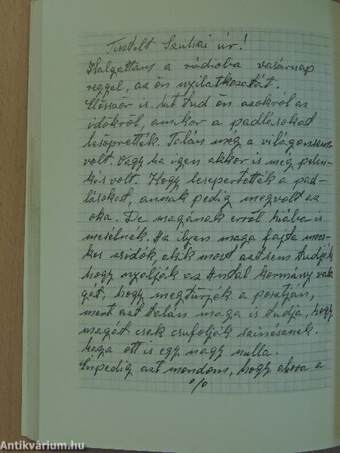 Tisztelt Szuhai úr!
Halgattam a rádióba vasárnap
reggel, az ön nyilatkozatát.
Elöször is, mit tud ön azokról az
idökröl, amikor a padlásokat
lesöprették. Talán még a világon sem
volt. Vagy ha igen akkor is még pelen-
kás volt. Hogy lesepertették a pad-
lásokat, annak pedig megvolt az
oka. De magának erröl hiába is
mesélnék. Az ilyen maga fajta mocs-
kos zsidók, akik most azt sem tudják
hogy nyalják az Antal kormány valagát,
gát, hogy megtürjék a posztján,
mert azt talán maga is tudja, hogy
magát csak csufolják szinésznek.
Maga ott is egy nagy nulla.
Énpedig azt mondom, hogy abba a
%
Antikvárium.hu